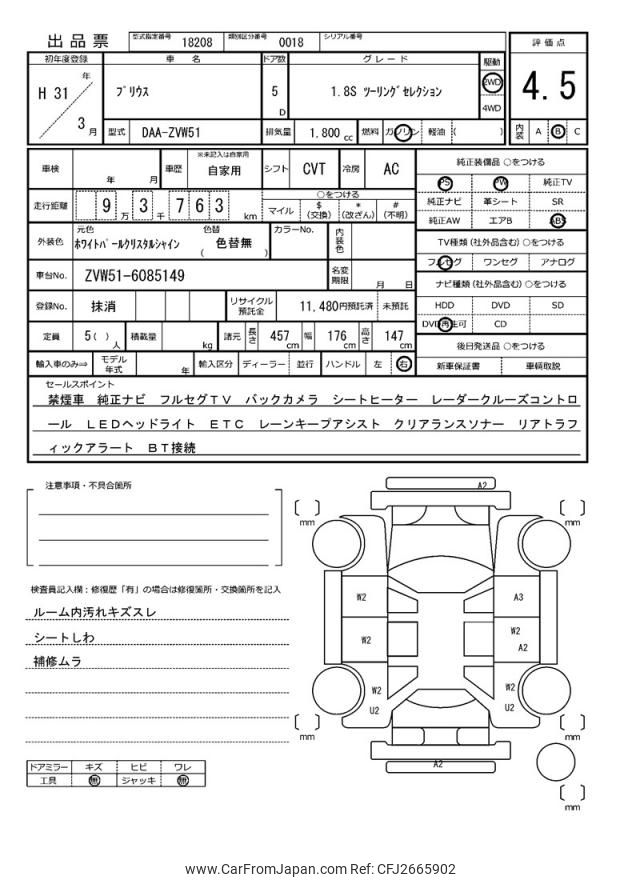 出品票 型式指定番号 18208 類別区分番号 0018 シリアル番号
評価点
4.5
初年度登録 車名 ドア数 グレード 駆動
H 31 年 3 月
プリウス 5 D 1.8S ツーリングセレクション 2WD
4WD
型式 DAA-ZVW51 排気量 1,800 cc 燃料 ガソリン 軽油 ( )
内装 A B C
車検 年 月 車歴 ※未記入は自家用 自家用 シフト CVT 冷房 AC
走行距離 9 3 7 6 3 万 千 km
○をつける
マイル $(交換) *(改ざん) #(不明)
外装色 元色 ホワイトパールクリスタルシャイン 色替 ( 色替無 ) カラーNo. 内装色
車台No. ZVW51-6085149 名変期限 月 日
登録No. 抹消 リサイクル預託金 11,480円預託済 未預託
定員 5( )人 積載量 kg 諸元 長さ 457 cm 幅 176 cm 高さ 147 cm
輸入車のみ⇒ モデル年式 年 輸入区分 ディーラー 並行 ハンドル 左 右
純正装備品 ○をつける
PS PW 純正TV
純正ナビ 革シート SR
純正AW エアB ABS
TV種類(社外品含む)○をつける
フルセグ ワンセグ アナログ
ナビ種類(社外品含む)○をつける
HDD DVD SD
DVD再生可 CD
後日発送品 ○をつける
新車保証書 車輌取説
セールスポイント
禁煙車 純正ナビ フルセグTV バックカメラ シートヒーター レーダークルーズコントロ
ール LEDヘッドライト ETC レーンキープアシスト クリアランスソナー リアトラフ
ィックアラート BT接続
注意事項・不具合箇所
検査員記入欄:修復歴「有」の場合は修復箇所・交換箇所を記入
ルーム内汚れキズスレ
シートしわ
補修ムラ
ドアミラー キズ ヒビ ワレ
工具 無 ジャッキ 無
A2
[ ] mm
[ ] mm
W2 A3
W2 W2
A2
W2 W2
U2 U2
[ ] mm
[ ] mm
A2
[ ] mm
www.CarFromJapan.com Ref: CFJ2665902